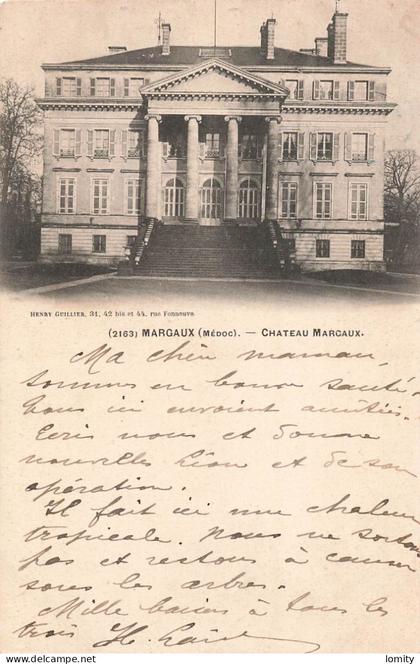 HENRY GUILLIER, 31, 42 bis et 44, rue Fonneuve
(2163) MARGAUX (MÉDOC). — CHATEAU MARGAUX.
Ma chère maman,
sommes en bonne santé.
Tous ici envoient amitiés.
Ecris nous et donne
nouvelles Léon et de son
opération.
Il fait ici une chaleur
tropicale. Nous ne sortons
pas et restons à causer
sous les arbres.
Mille baisers à tous les
trois
delcampe.net
tomity